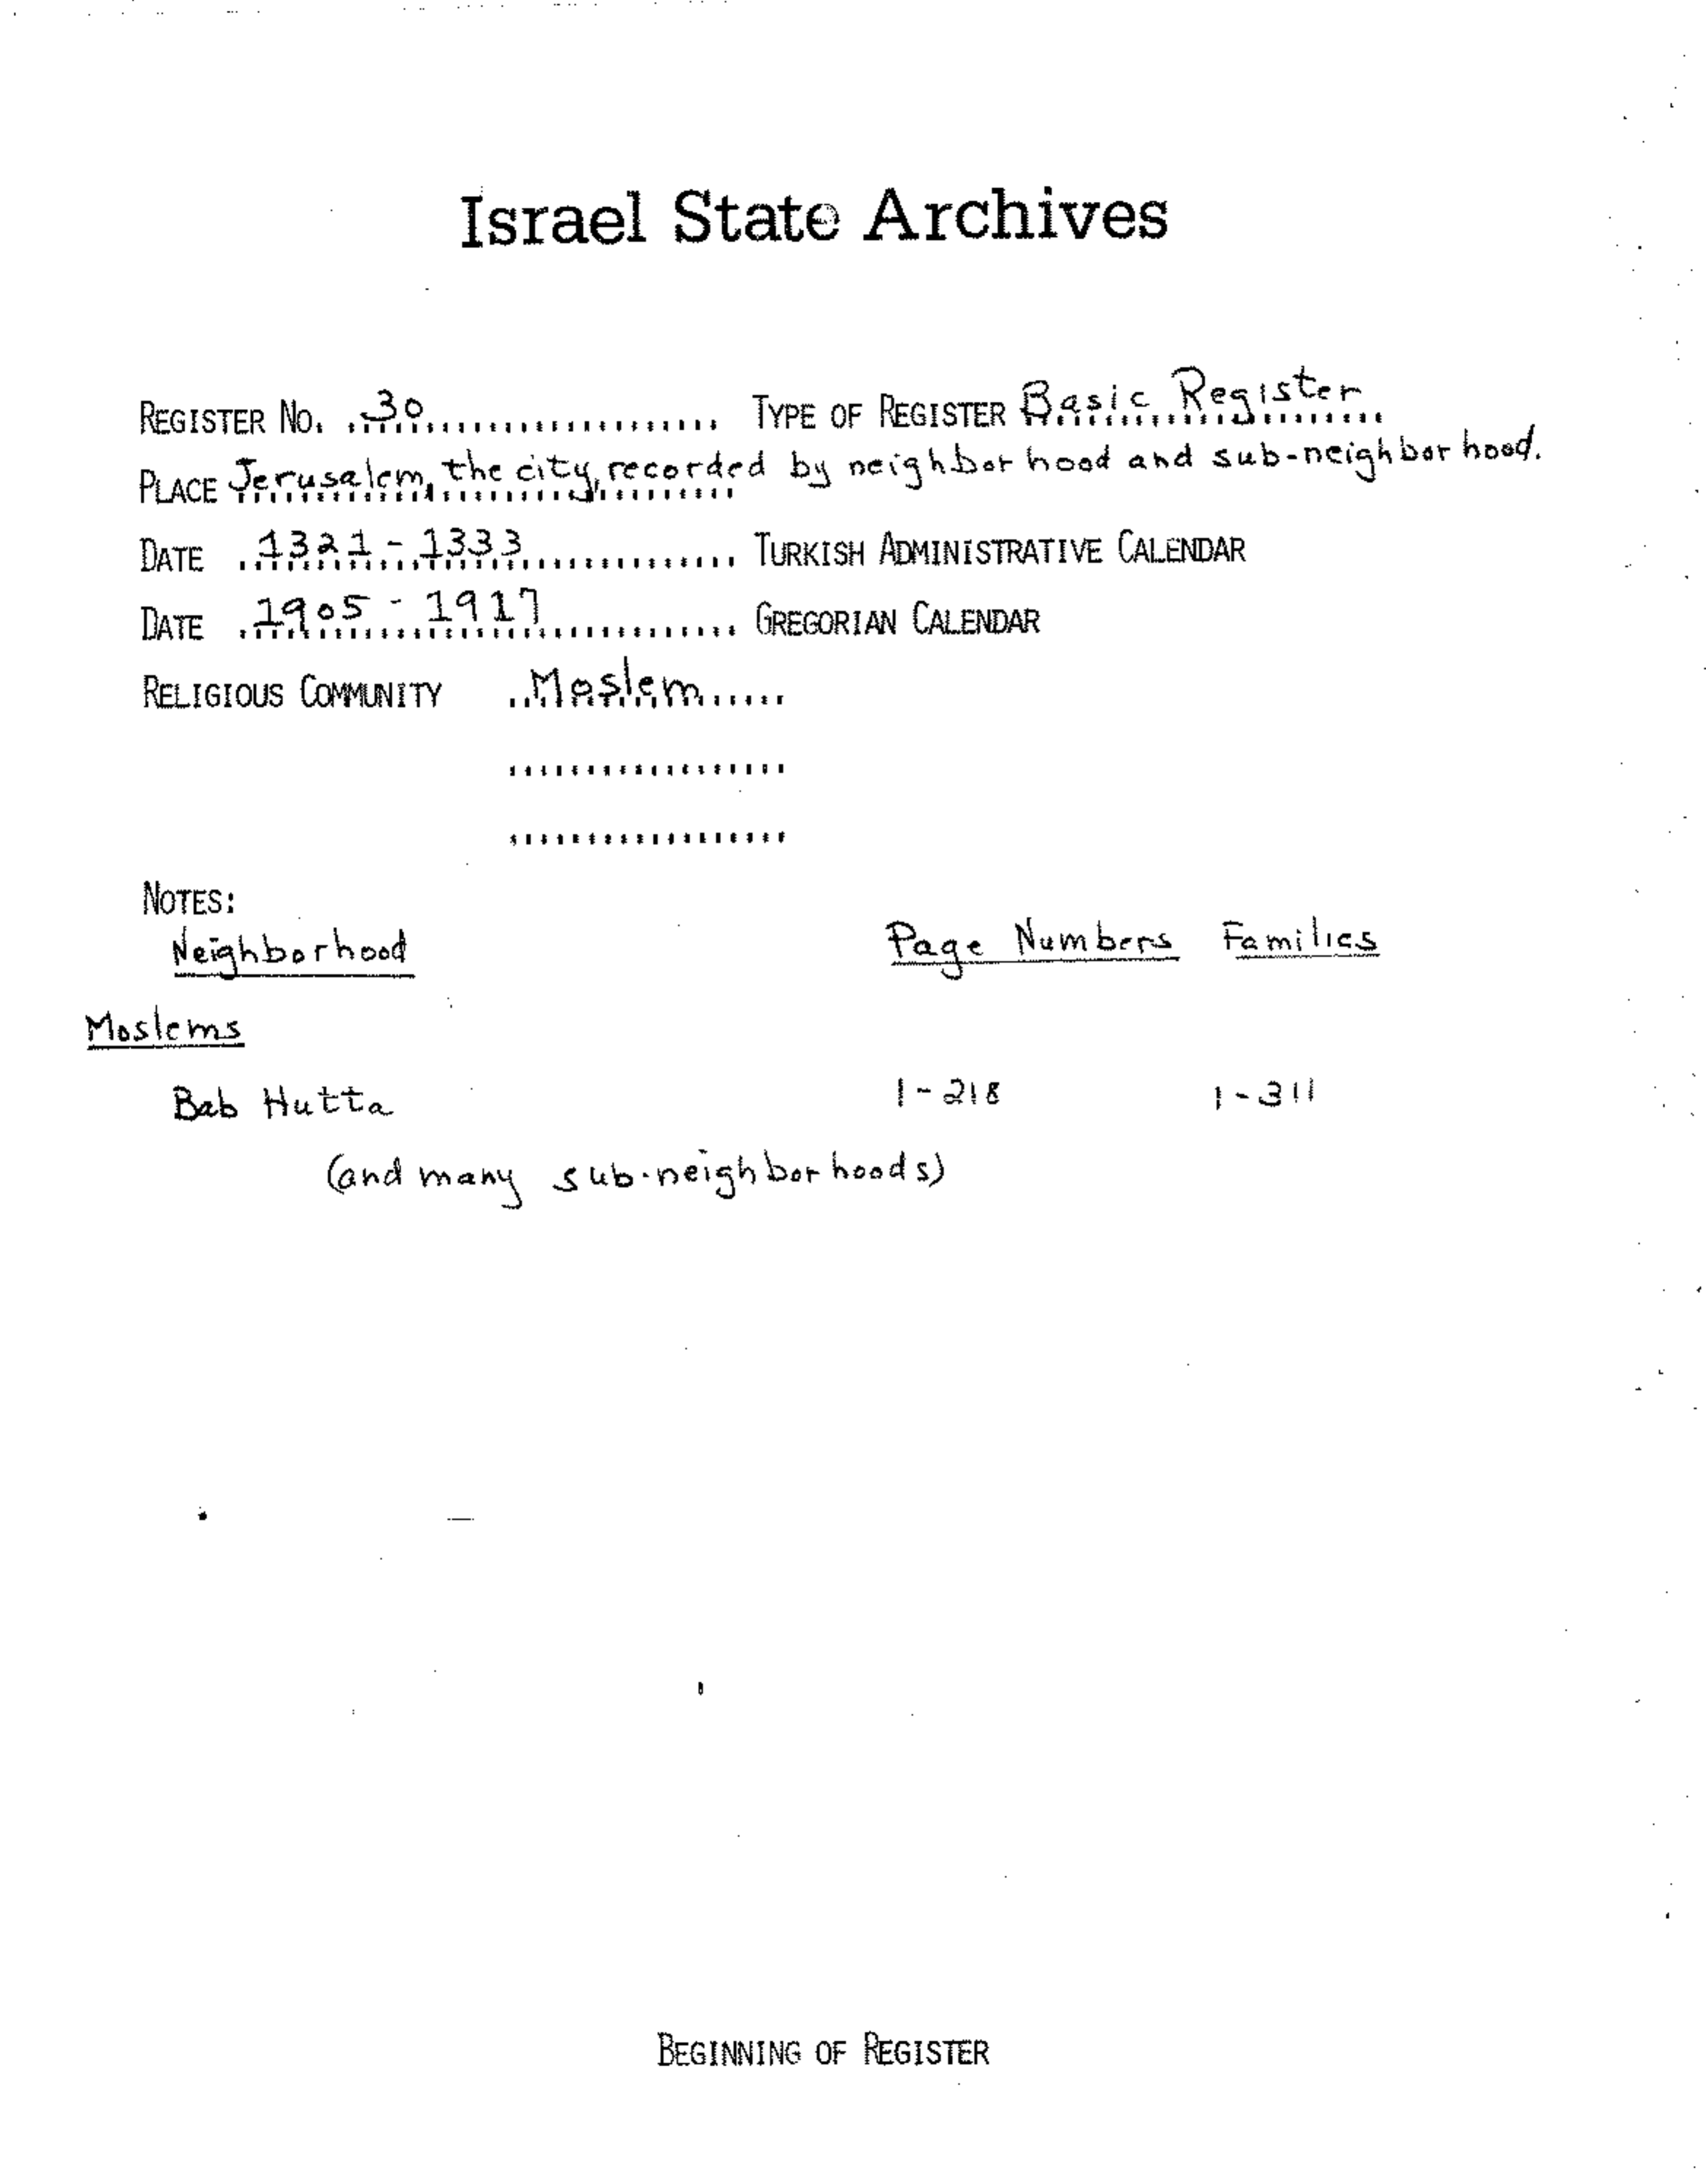 Israel State Archives
REGISTER NO. 30 TYPE OF REGISTER Basic Register
PLACE Jerusalem, the city, recorded by neighborhood and sub-neighborhood.
DATE 1321 - 1333 TURKISH ADMINISTRATIVE CALENDAR
DATE 1905 - 1917 GREGORIAN CALENDAR
RELIGIOUS COMMUNITY Moslem
NOTES:
Neighborhood Page Numbers Families
Moslems
Bab Hutta 1-218 1-311
(and many sub-neighborhoods)
BEGINNING OF REGISTER